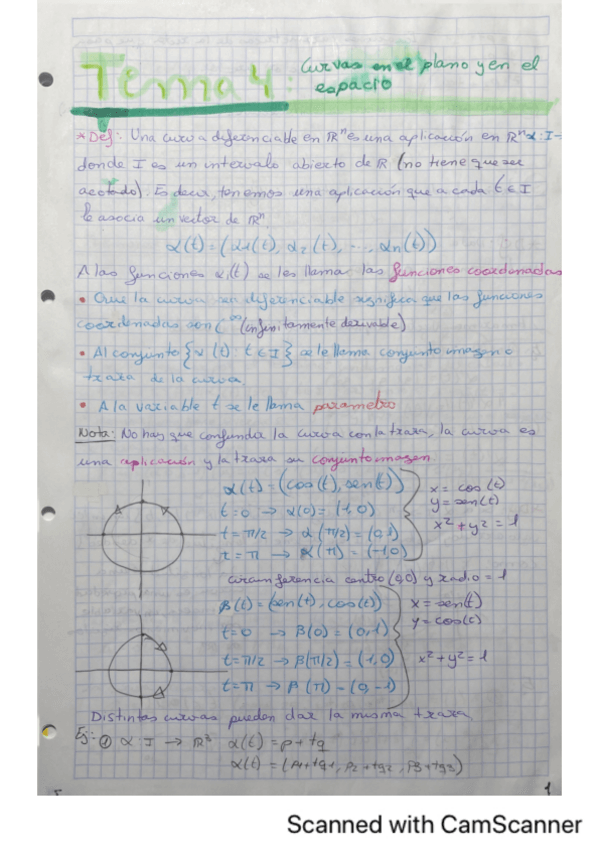 Tema 4: Curvas en el plano y en el
espacio
* Def: Una curva diferenciable en ℝⁿ es una aplicación en ℝⁿ α: I-
donde I es un intervalo abierto de ℝ (no tiene que ser
acotado). Es decir, tenemos una aplicación que a cada t ∈ I
le asocia un vector de ℝⁿ.
α(t) = (α1(t), α2(t), ..., αn(t))
A las funciones αi(t) se les llama las funciones coordenadas
• Que la curva sea diferenciable significa que las funciones
coordenadas son C^∞ (infinitamente derivable)
• Al conjunto {α(t) t ∈ I} se le llama conjunto imagen o
traza de la curva.
• A la variable t se le llama parametro
Nota: No hay que confundir la curva con la traza, la curva es
una aplicación y la traza su conjunto imagen
α(t) = (cos(t), sen(t))
t=0 → α(0) = (1,0)
t=π/2 → α(π/2) = (0,1)
t=π → α(π) = (-1,0)
x = cos(t)
y = sen(t)
x² + y² = 1
circunferencia centro (0,0) y radio = 1
β(t) = (sen(t), cos(t))
t=0 → β(0) = (0,1)
t=π/2 → β(π/2) = (1,0)
t=π → β(π) = (0,-1)
x = sen(t)
y = cos(t)
x² + y² = 1
Distintas curvas pueden dar la misma traza
Ej: ① α: I → ℝ³ α(t) = p + tq
α(t) = (p1+tq1, p2+tq2, p3+tq3)
1
Scanned with CamScanner